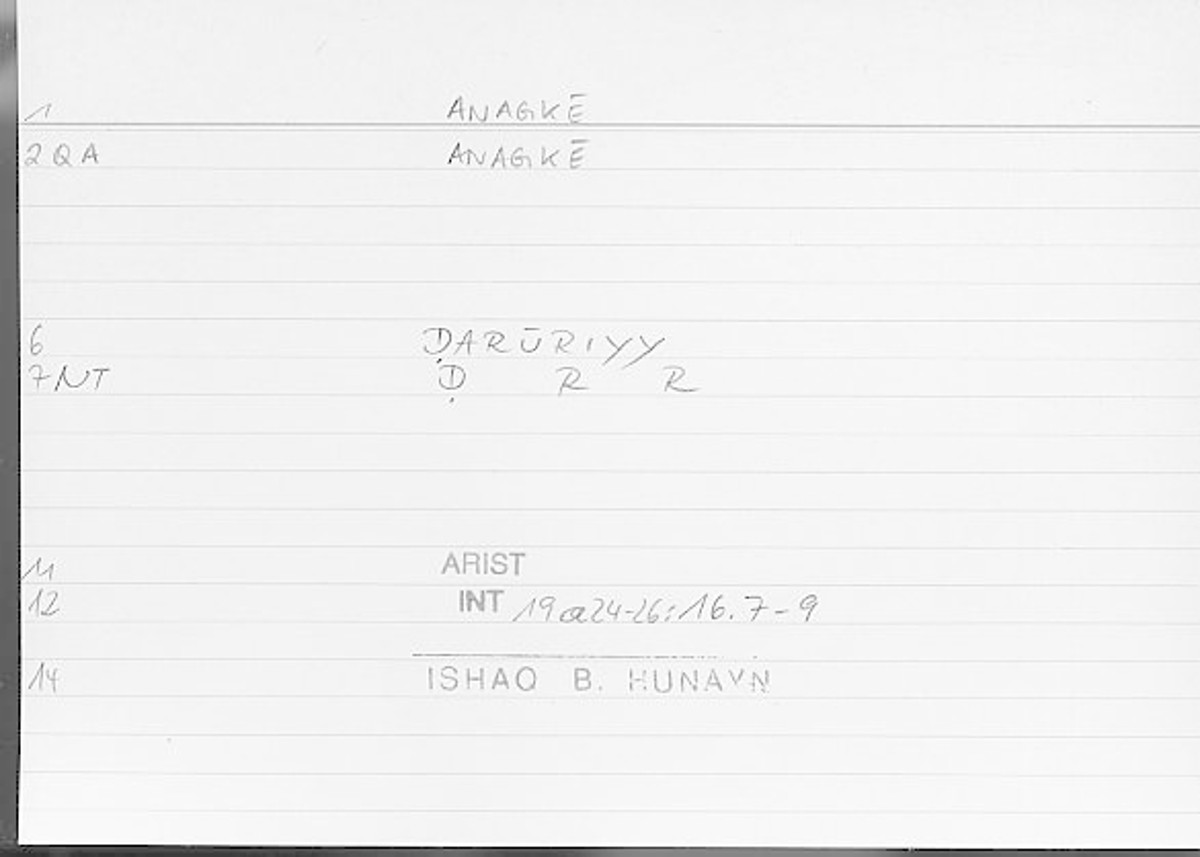 1 ANAGKĒ
2 QA ANAGKĒ
6 ḌARŪRIYY
7 NT Ḍ R R
11 ARIST
12 INT 19a24-26:16.7-9
14 ISHAQ B. HUNAYN